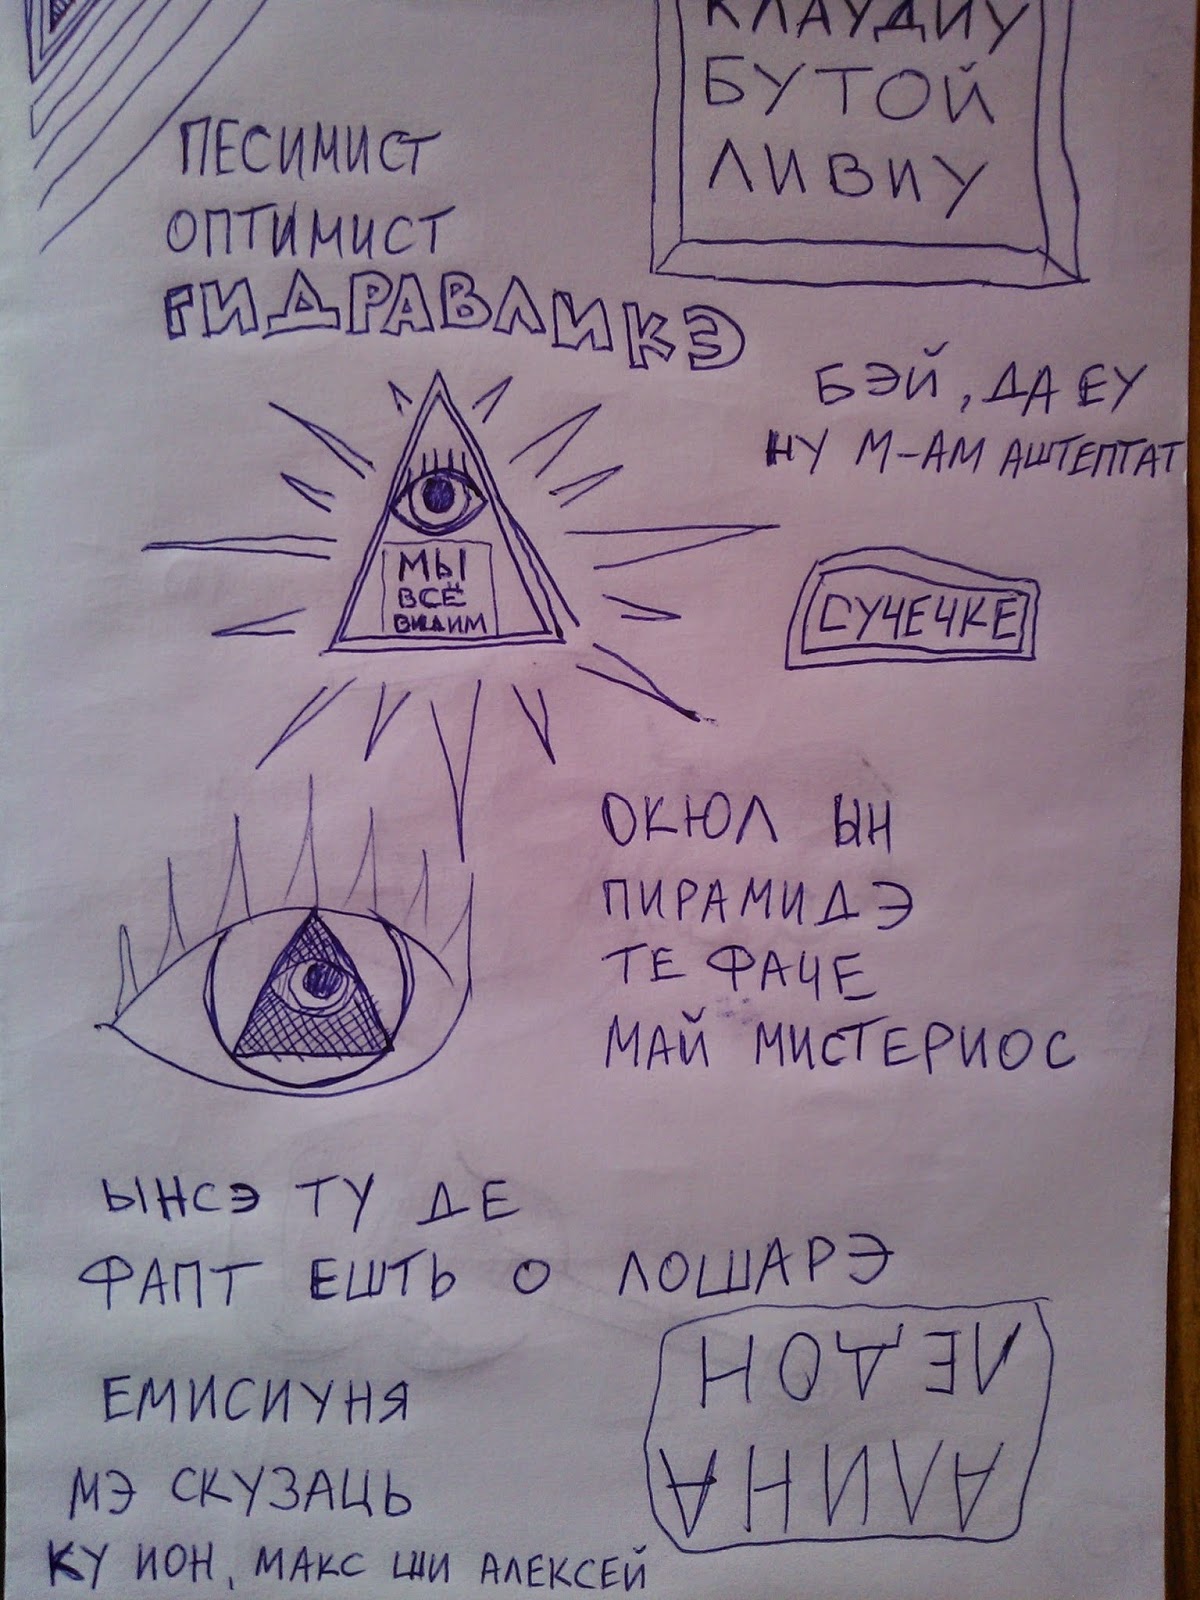 КЛАУДИУ
БУТОЙ
ЛИВИУ
ПЕСИМИСТ
ОПТИМИСТ
ГИДРАВЛИКЭ
БЭЙ, ДА ЕУ
НУ М-АМ АШТЕПТАТ
МЫ
ВСЁ
ВИДИМ
СУЧЕЧКЕ
ОКЮЛ ЫН
ПИРАМИДЭ
ТЕ ФАЧЕ
МАЙ МИСТЕРИОС
ЫНСЭ ТУ ДЕ
ФАПТ ЕШТЬ О ЛОШАРЭ
АЛИНА
ЛЕДОН
ЕМИСИУНЯ
МЭ СКУЗАЦЬ
КУ ИОН, МАКС ШИ АЛЕКСЕЙ